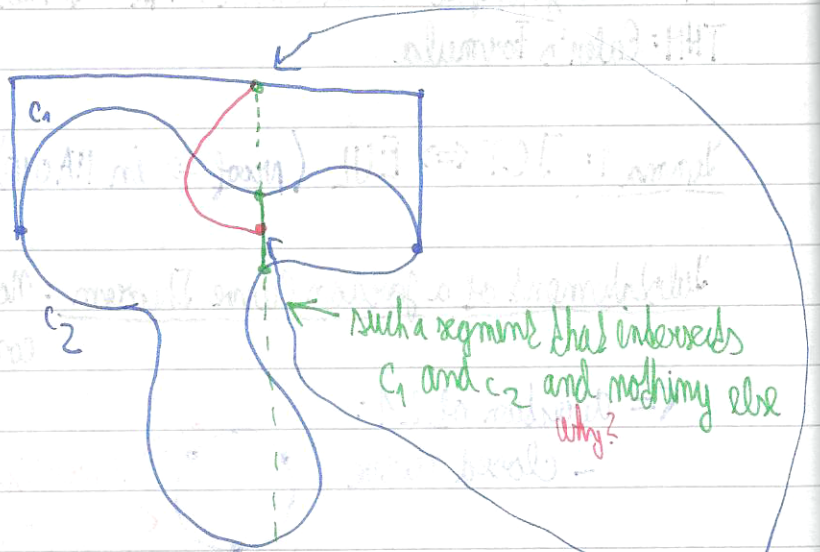 C1
C2
such a segment that intersects
C1 and C2 and nothing else
why?